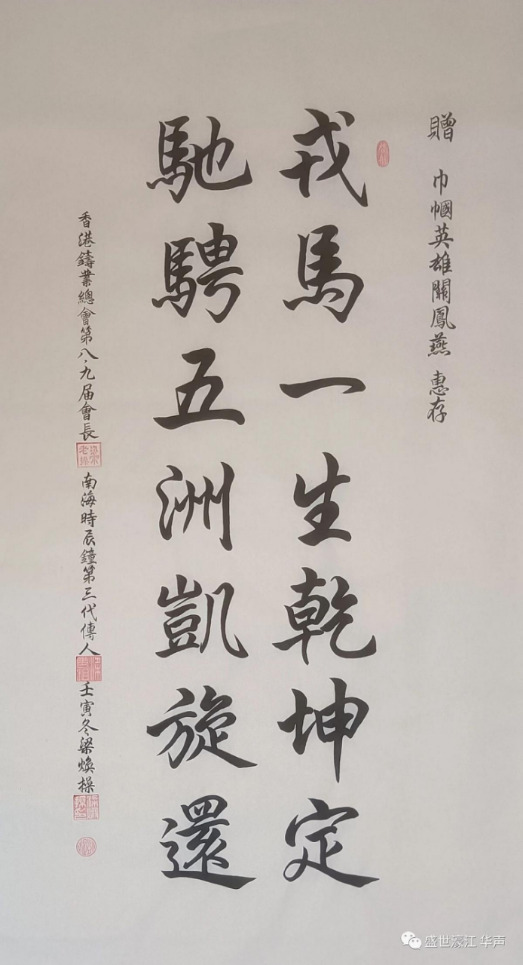 贈 巾幗英雄關鳳燕 惠存
戎馬一生乾坤定
馳騁五洲凱旋還
香港鑄業總會第八·九届會長 南海時辰鐘第三代傳人 壬寅冬梁煥操
盛世濠江 华声